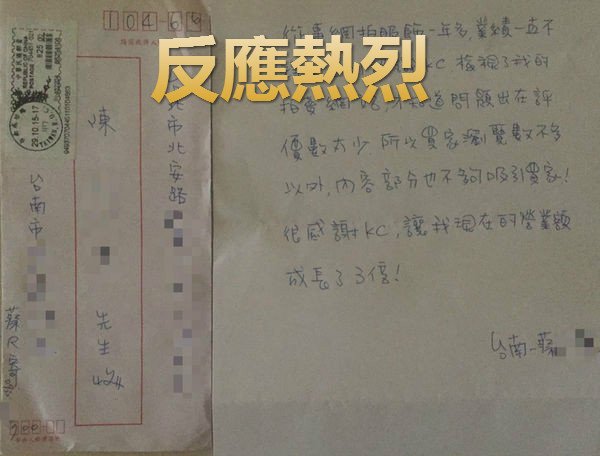 反應熱烈
104-69
北市北安路
陳
先生 收
台南市
蔡R寄
700-00
29.10.15-17
REPUBLIC OF CHINA
從事網拍服飾一年多,業績一直不
KC 檢視了我的
拍賣網站,才知道問題出在評
價數太少,所以買家瀏覽數不多
以外,內容部分也不夠吸引買家!
很感謝KC,讓我現在的營業額
成長了3倍!
台南-蔡